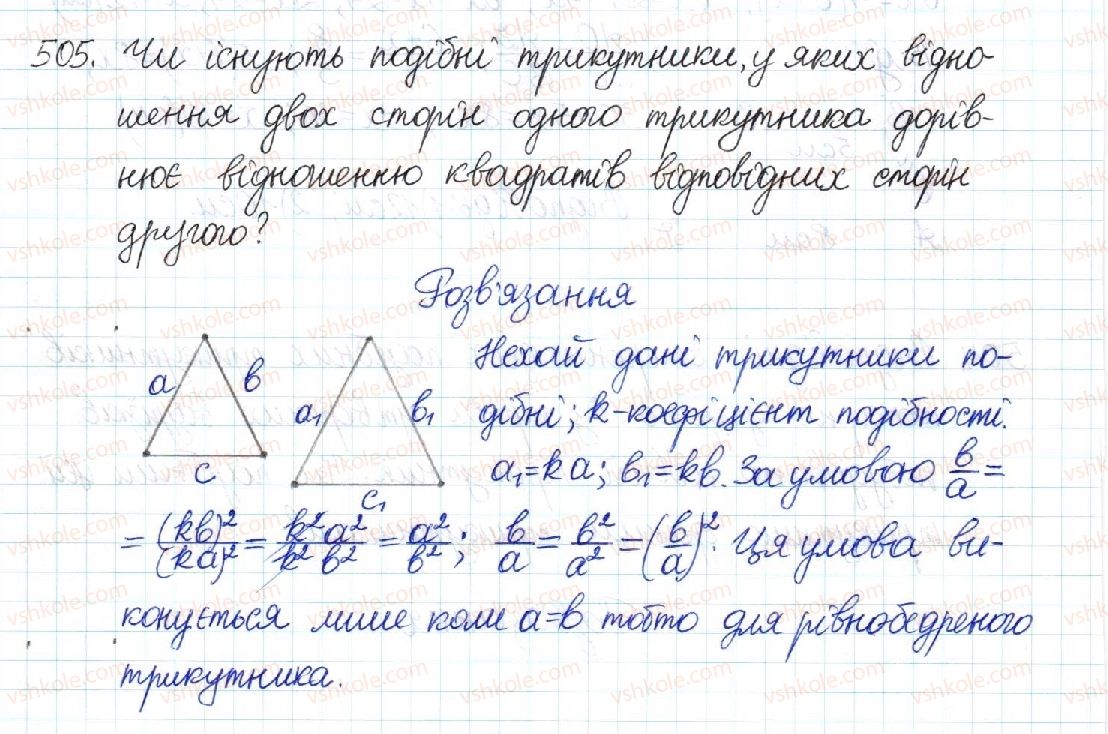 505. Чи існують подібні трикутники, у яких відно-
шення двох сторін одного трикутника дорів-
нює відношенню квадратів відповідних сторін
другого?
Розв'язання
a в c
a₁ в₁ c₁
Нехай дані трикутники по-
дібні; k-коефіцієнт подібності.
a₁=ka; в₁=kв. За умовою в/a=
=(kв)²/(ka)²=k²a²/k²в²=a²/в²; в/a=в²/a²=(в/a)². Ця умова ви-
конується лише коли a=в тобто для рівнобедреного
трикутника.
vshkole.com